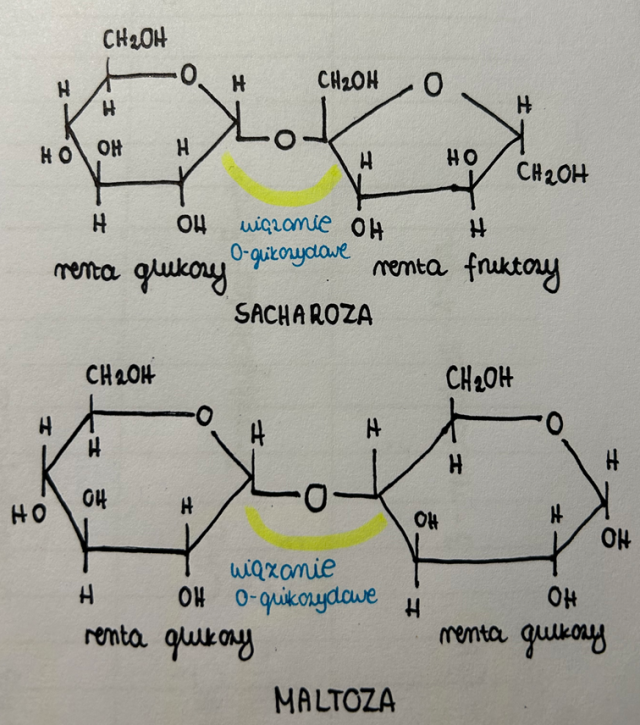 CH2OH
O
H
H
CH2OH
O
H
H
HO
OH
H
O
H
HO
CH2OH
H
OH
OH
H
wiązanie
O-glikozydowe
reszta glukozy
reszta fruktozy
SACHAROZA
CH2OH
CH2OH
O
O
H
H
H
H
H
H
HO
OH
H
O
OH
H
OH
H
OH
wiązanie
O-glikozydowe
H
OH
reszta glukozy
reszta glukozy
MALTOZA